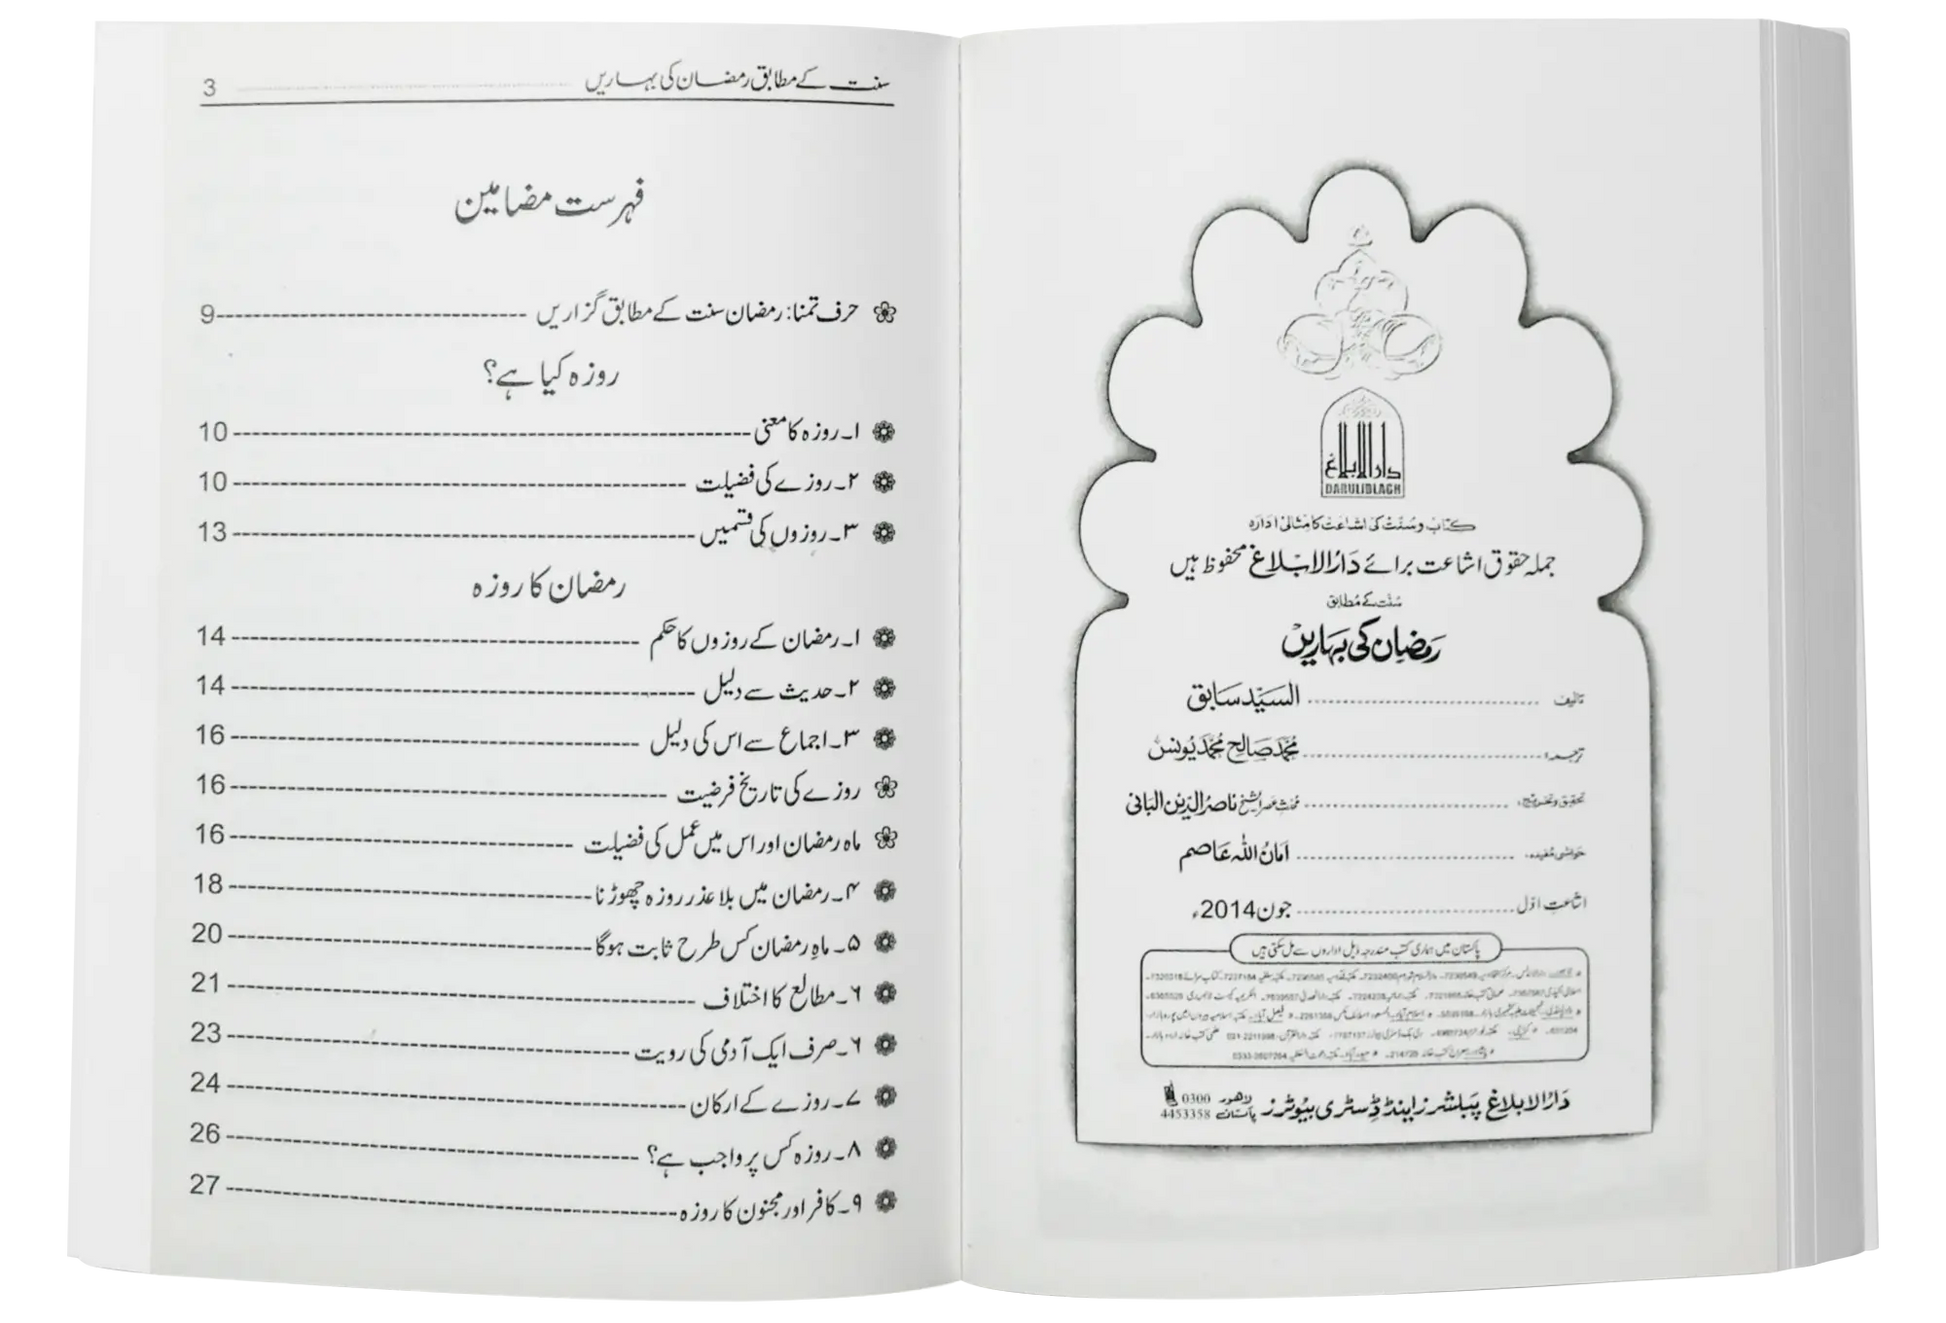 دار الابلاغ
DARULIBLAGH
کتاب و سنت کی اشاعت کا مثالی ادارہ
جملہ حقوق اشاعت برائے دار الابلاغ محفوظ ہیں
سنت کے مطابق
رمضان کی بہاریں
تالیف ........ السید سابق
ترجمہ ........ محمد صالح محمد یونس
تحقیق و تخریج: ........ محدث عصر الشیخ ناصر الدین البانی
حواشی مفیدہ: ........ امان اللہ عاصم
اشاعت اول ........ جون 2014ء
پاکستان میں ہماری کتب مندرجہ ذیل اداروں سے مل سکتی ہیں
دار الابلاغ پبلشرز اینڈ ڈسٹری بیوٹرز لاہور پاکستان 0300 4453358
سنت کے مطابق رمضان کی بہاریں 3
فہرست مضامین
حرف تمنا: رمضان سنت کے مطابق گزاریں ---- 9
روزہ کیا ہے؟
۱۔ روزہ کا معنی ---- 10
۲۔ روزے کی فضیلت ---- 10
۳۔ روزوں کی قسمیں ---- 13
رمضان کا روزہ
۱۔ رمضان کے روزوں کا حکم ---- 14
۲۔ حدیث سے دلیل ---- 14
۳۔ اجماع سے اس کی دلیل ---- 16
روزے کی تاریخ فرضیت ---- 16
ماہ رمضان اور اس میں عمل کی فضیلت ---- 16
۴۔ رمضان میں بلا عذر روزہ چھوڑنا ---- 18
۵۔ ماہِ رمضان کس طرح ثابت ہوگا ---- 20
۶۔ مطالع کا اختلاف ---- 21
۶۔ صرف ایک آدمی کی رویت ---- 23
۷۔ روزے کے ارکان ---- 24
۸۔ روزہ کس پر واجب ہے؟ ---- 26
۹۔ کافر اور مجنون کا روزہ ---- 27